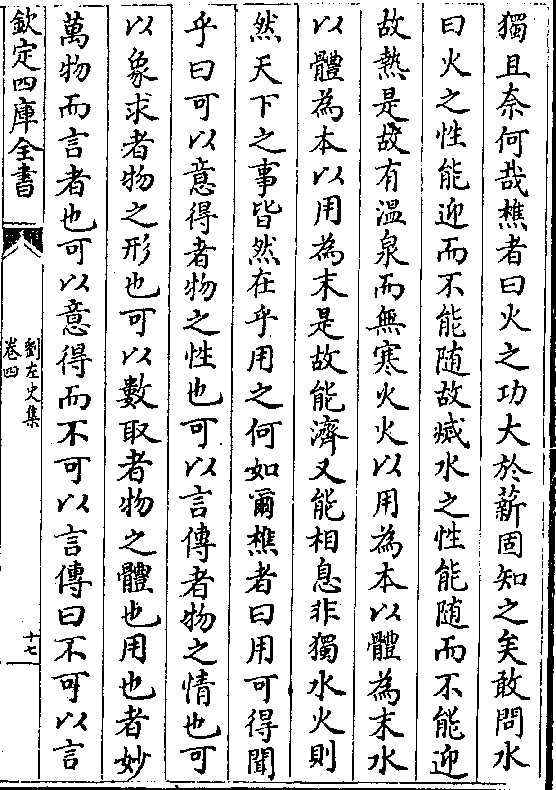 獨且奈何哉樵者曰火之功大於薪固知之矣敢問水
曰火之性能迎而不能随故㓕水之性能随而不能迎
故熱是故有溫泉而無寒火火以用為本以體為末水
以體為本以用為末是故能濟又能相息非獨水火則
然天下之事皆然在乎用之何如爾樵者曰用可得聞
乎曰可以意得者物之性也可以言傳者物之情也可
以象求者物之形也可以數取者物之體也用也者妙
萬物而言者也可以意得而不可以言傳曰不可以言
欽定四庫全書
劉左史集
卷四
十七